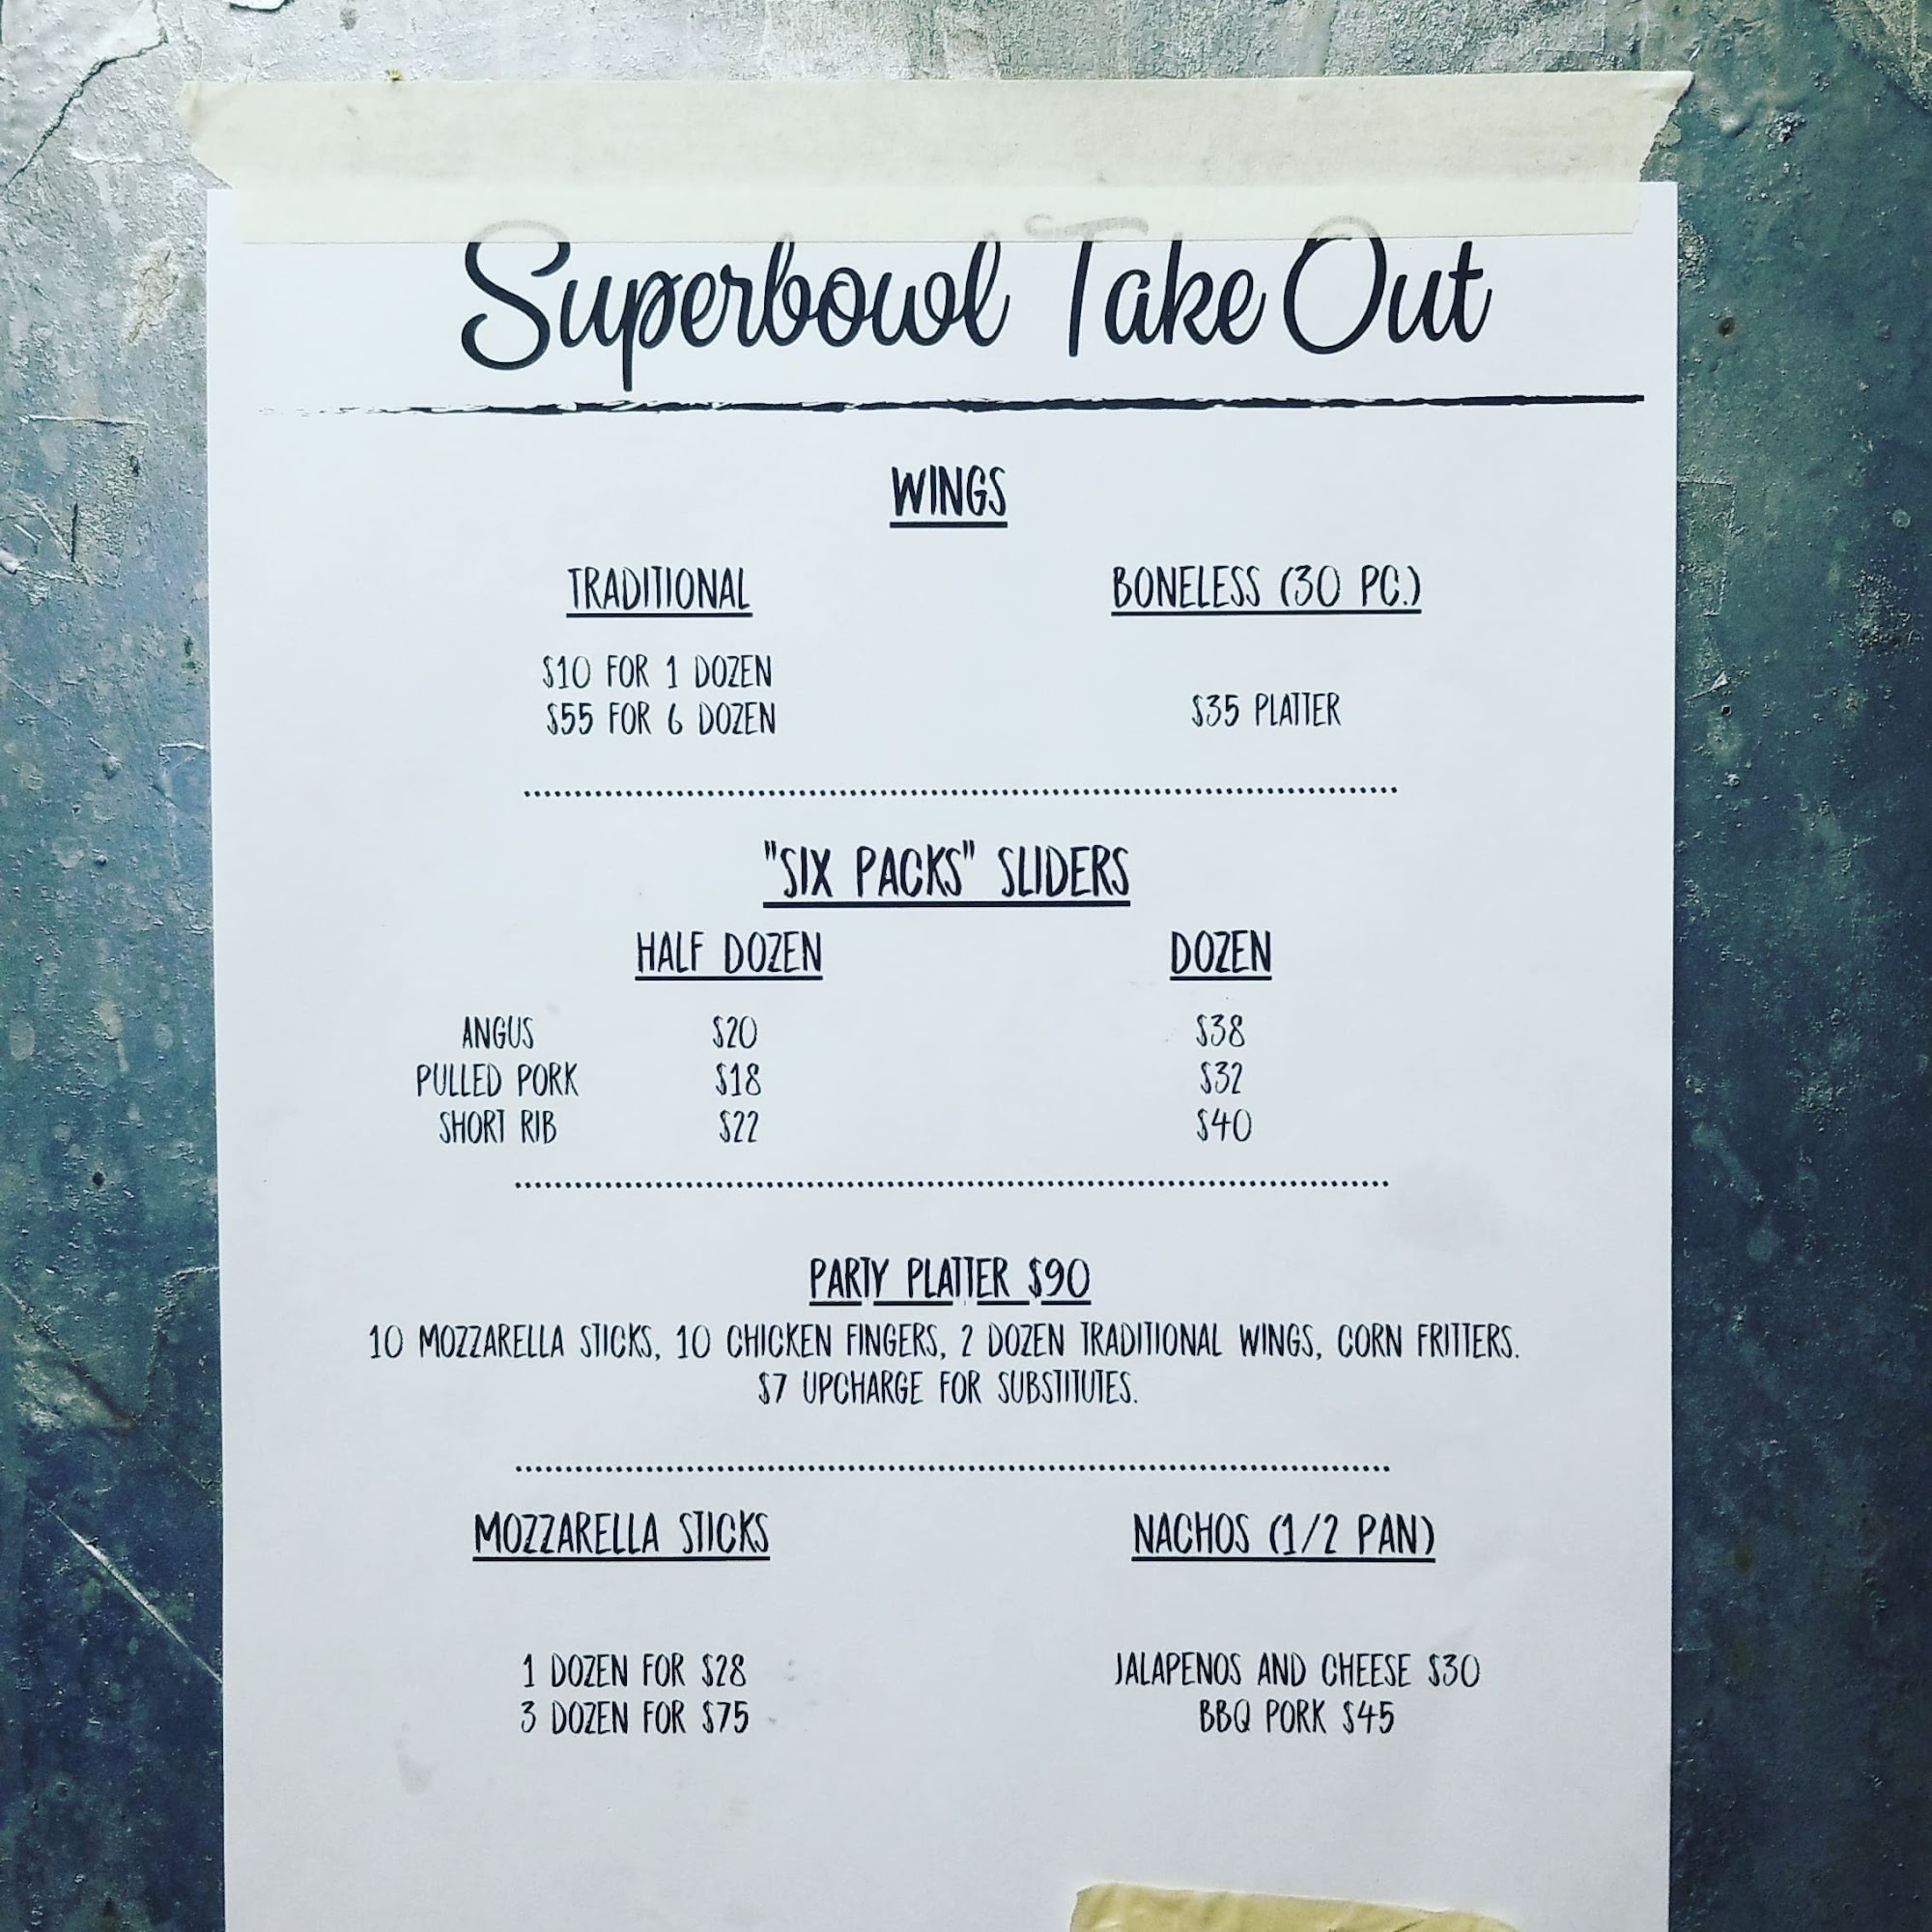 Superbowl Take Out
WINGS
TRADITIONAL BONELESS (30 PC.)
$10 FOR 1 DOZEN
$55 FOR 6 DOZEN
$35 PLATTER
"SIX PACKS" SLIDERS
HALF DOZEN DOZEN
ANGUS $20 $38
PULLED PORK $18 $32
SHORT RIB $22 $40
PARTY PLATTER $90
10 MOZZARELLA STICKS, 10 CHICKEN FINGERS, 2 DOZEN TRADITIONAL WINGS, CORN FRITTERS.
$7 UPCHARGE FOR SUBSTITUTES.
MOZZARELLA STICKS NACHOS (1/2 PAN)
1 DOZEN FOR $28 JALAPENOS AND CHEESE $30
3 DOZEN FOR $75 BBQ PORK $45